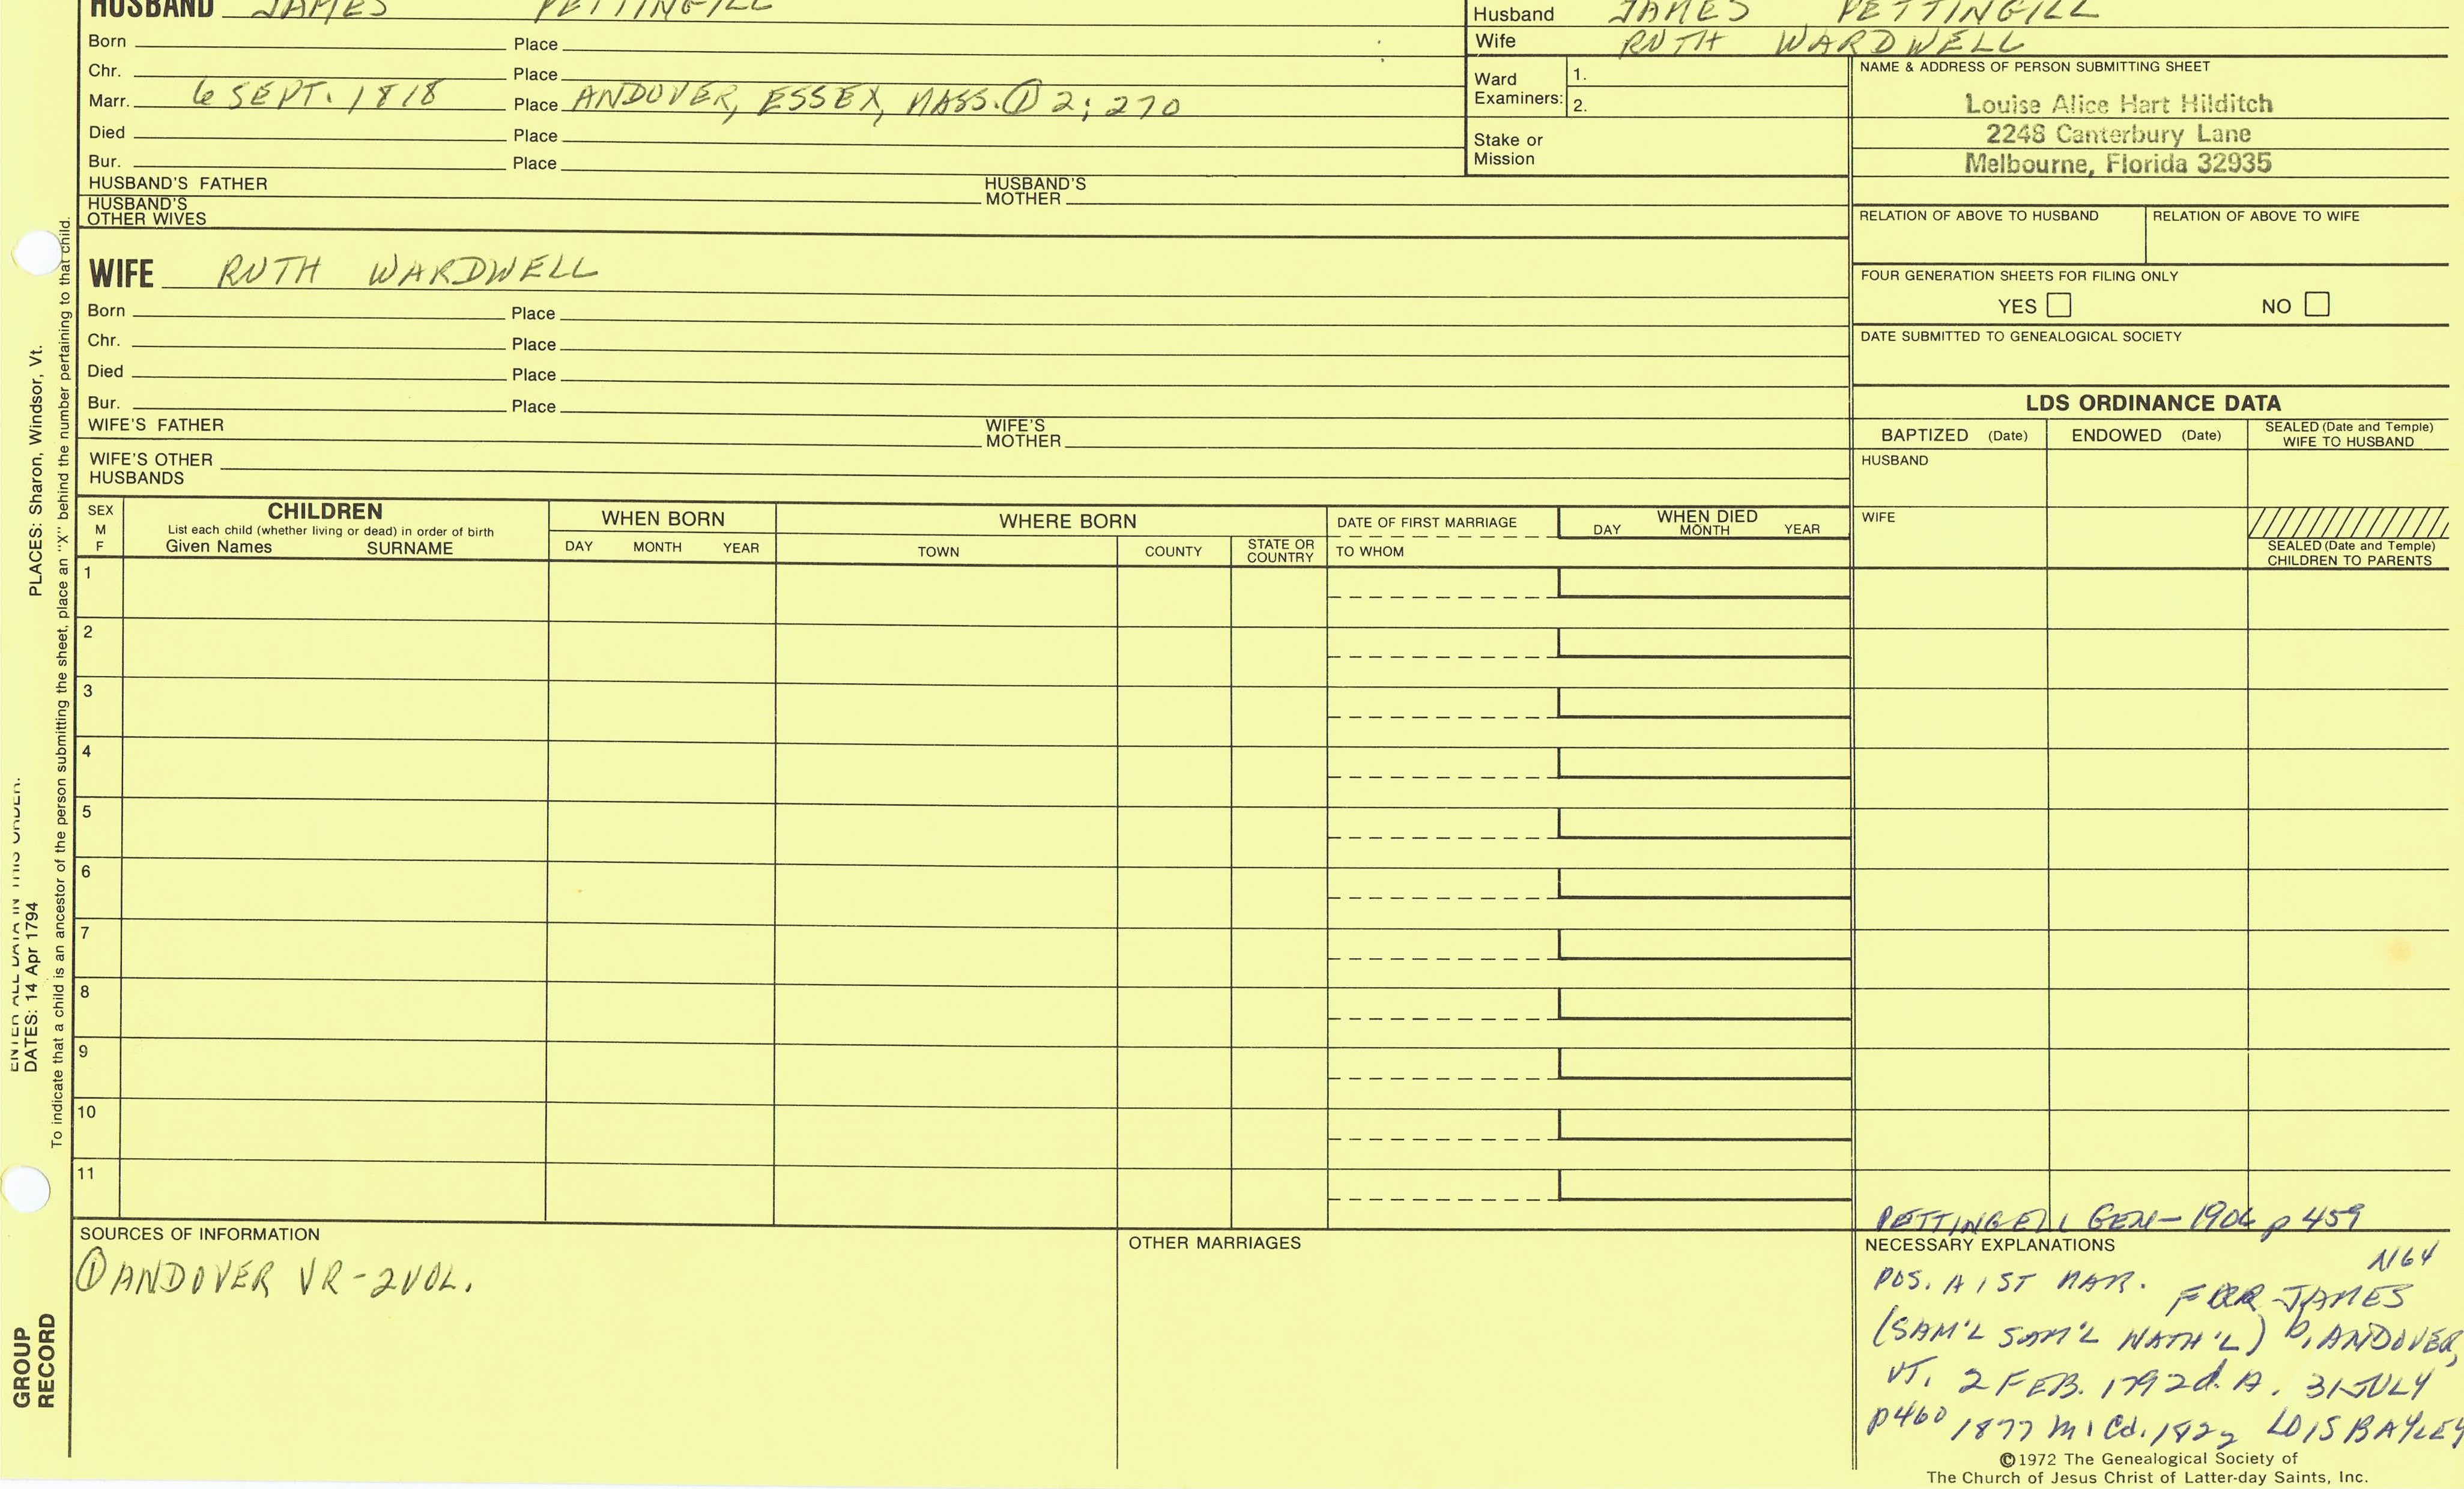 HUSBAND JAMES PETTINGILL
Born Place
Chr. Place
Marr. 6 SEPT. 1818 Place ANDOVER, ESSEX, MASS. ① 2; 270
Died Place
Bur. Place
HUSBAND'S FATHER HUSBAND'S MOTHER
HUSBAND'S OTHER WIVES
Husband JAMES PETTINGILL
Wife RUTH WARDWELL
Ward Examiners: 1.
2.
Stake or Mission
NAME & ADDRESS OF PERSON SUBMITTING SHEET
Louise Alice Hart Hilditch
2248 Canterbury Lane
Melbourne, Florida 32935
RELATION OF ABOVE TO HUSBAND RELATION OF ABOVE TO WIFE
FOUR GENERATION SHEETS FOR FILING ONLY
YES NO
DATE SUBMITTED TO GENEALOGICAL SOCIETY
WIFE RUTH WARDWELL
Born Place
Chr. Place
Died Place
Bur. Place
WIFE'S FATHER WIFE'S MOTHER
WIFE'S OTHER HUSBANDS
LDS ORDINANCE DATA
BAPTIZED (Date) ENDOWED (Date) SEALED (Date and Temple) WIFE TO HUSBAND
HUSBAND
WIFE
SEALED (Date and Temple) CHILDREN TO PARENTS
SEX M F
CHILDREN
List each child (whether living or dead) in order of birth
Given Names SURNAME
WHEN BORN
DAY MONTH YEAR
WHERE BORN
TOWN COUNTY STATE OR COUNTRY
DATE OF FIRST MARRIAGE
TO WHOM
WHEN DIED
DAY MONTH YEAR
1
2
3
4
5
6
7
8
9
10
11
SOURCES OF INFORMATION
① ANDOVER VR - 2 VOL.
OTHER MARRIAGES
PETTINGELL GEN - 1906 p 459
NECESSARY EXPLANATIONS
N64
POS. A 1ST MAR. FOR JAMES
(SAM'L SAM'L NATH'L) b. ANDOVER,
VT. 2 FEB. 1792 d. A. 31 JULY
p460 1877 m 1 Cd. 1822 LOIS BAYLEY
©1972 The Genealogical Society of
The Church of Jesus Christ of Latter-day Saints, Inc.
PLACES: Sharon, Windsor, Vt.
ENTER ALL DATA IN THIS ORDER:
DATES: 14 Apr 1794
To indicate that a child is an ancestor of the person submitting the sheet, place an "X" behind the number pertaining to that child.
GROUP
RECORD